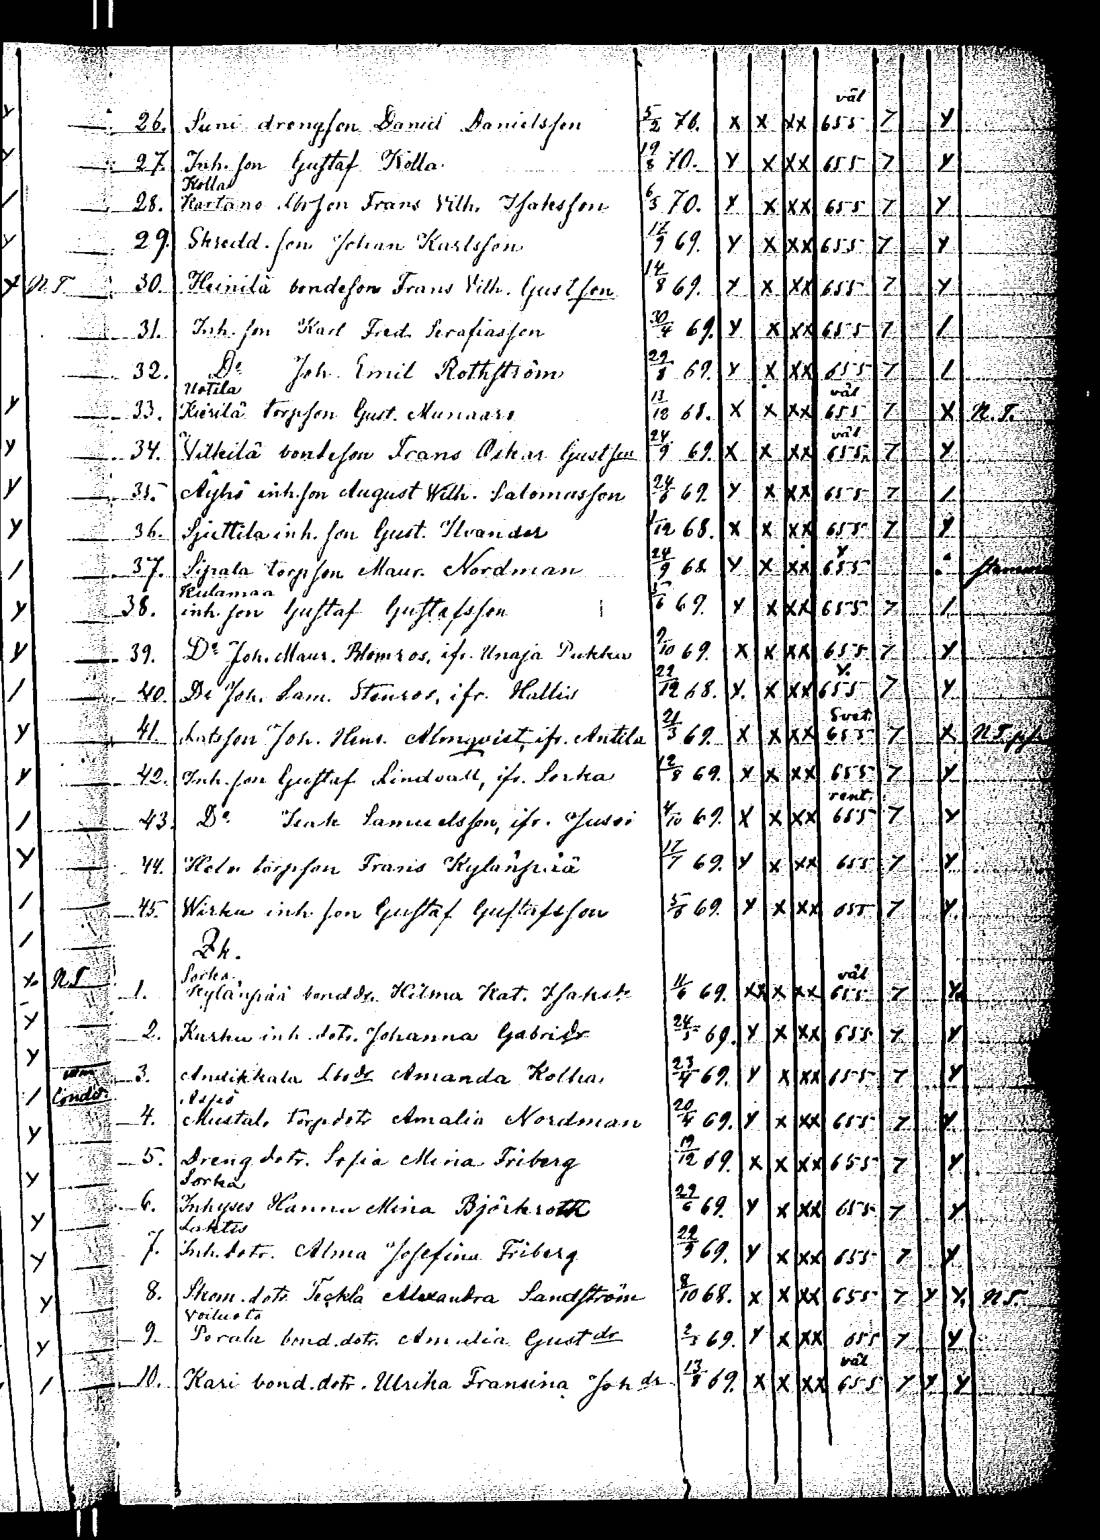 väl
26. Suni drengson Daniel Danielsson 5/2 70. x x xx 655 7 y
27. Inh. son Gustaf Kolla. 19/8 70. y x xx 655 7 y
Kolla
28. Kartano Lboson Frans Vilh. Isaksson 6/3 70. y x xx 655 7 y
29. Skredd. son Johan Karlsson 17/9 69. y x xx 655 7 y
N.T. 30. Heinilä bondeson Frans Vilh. Gustson 14/8 69. y x xx 655 7 y
31. Inh. son Karl Fred. Serafiasson 30/4 69. y x xx 655 7 /
32. Do Joh. Emil Rothström 29/8 69. y x xx 655 7 /
Uotila väl
33. torpson Gust. Munaars 13/12 68. x x xx 655 7 x N.T.
väl
34. bondeson Frans Oskar Gustson 24/9 69. x x xx 655. 7 y
35. Äyhö inh. son August Wilh. Salomosson 24/8 69. y x xx 655 7 /
36. Sjuttila inh. son Gust. Ilvander 1/12 68. x x xx 655 7 y
y
37. torpson Maur. Nordman 24/9 68. y x xx 655
Kulamaa
38. inh. son Gustaf Gustafsson 5/6 69. y x xx 655 7 /
39. Do Joh. Maur. Blomros, ifr. Unaja Pukka 9/10 69. x x xx 655 7 y
y.
40. Do Joh. Sam. Stenros, ifr. Hallis 22/12 68. y. x xx 655 7 y
Svet.
41. Lotsson Joh. Henr. Almqvist, ifr. Anttila 21/3 69. x x xx 655 7 x N.T.
42. Inh. son Gustaf Lindvall, ifr. Sorka 12/8 69. y x xx 655 7 y
rent.
43. Do Isak Samuelsson, ifr. Jussi 4/10 69. y x xx 655 7 y
44. torpson Frans Kylänpää 17/7 69. y x xx 655 7 y
45. Wirku inh. son Gustaf Gustafsson 5/8 69. y x xx 655 7 y.
Qk.
N.T. Sorka. väl
1. Kylänpää bond.dr. Hilma Kat. Isaksdr 11/6 69. xx x xx 655 7 y
2. Kurku inh. dotr. Johanna Gabrielsdr 24/5 69. y x xx 655 7 y
3. Anttikkala Lbodr Amanda Kolha 23/4 69. y x xx 655 7 y
4. torpdotr Amalia Nordman 20/4 69. y x xx 655 7 y.
5. Dreng dotr. Sofia Mina Friberg 19/12 69. x x xx 655 7 y.
Sorka
6. Inhyses Hanna Mina Björkroth 29/6 69. y x xx 655. 7 y
Laktis
7. Inh. dotr. Alma Josefina Friberg 22/9 69. y x xx 655 7 y.
8. Skom. dotr. Teckla Alexandra Sandström 8/10 68. x x xx 655 7 y y. N.T.
Voiluoto
9. Porala bond. dotr. Amalia Gustdr 2/3 69. y x xx 655 7 y
väl
10. Kari bond. dotr. Ulrika Fransina Johdr 13/8 69. x x xx 655 7 y y